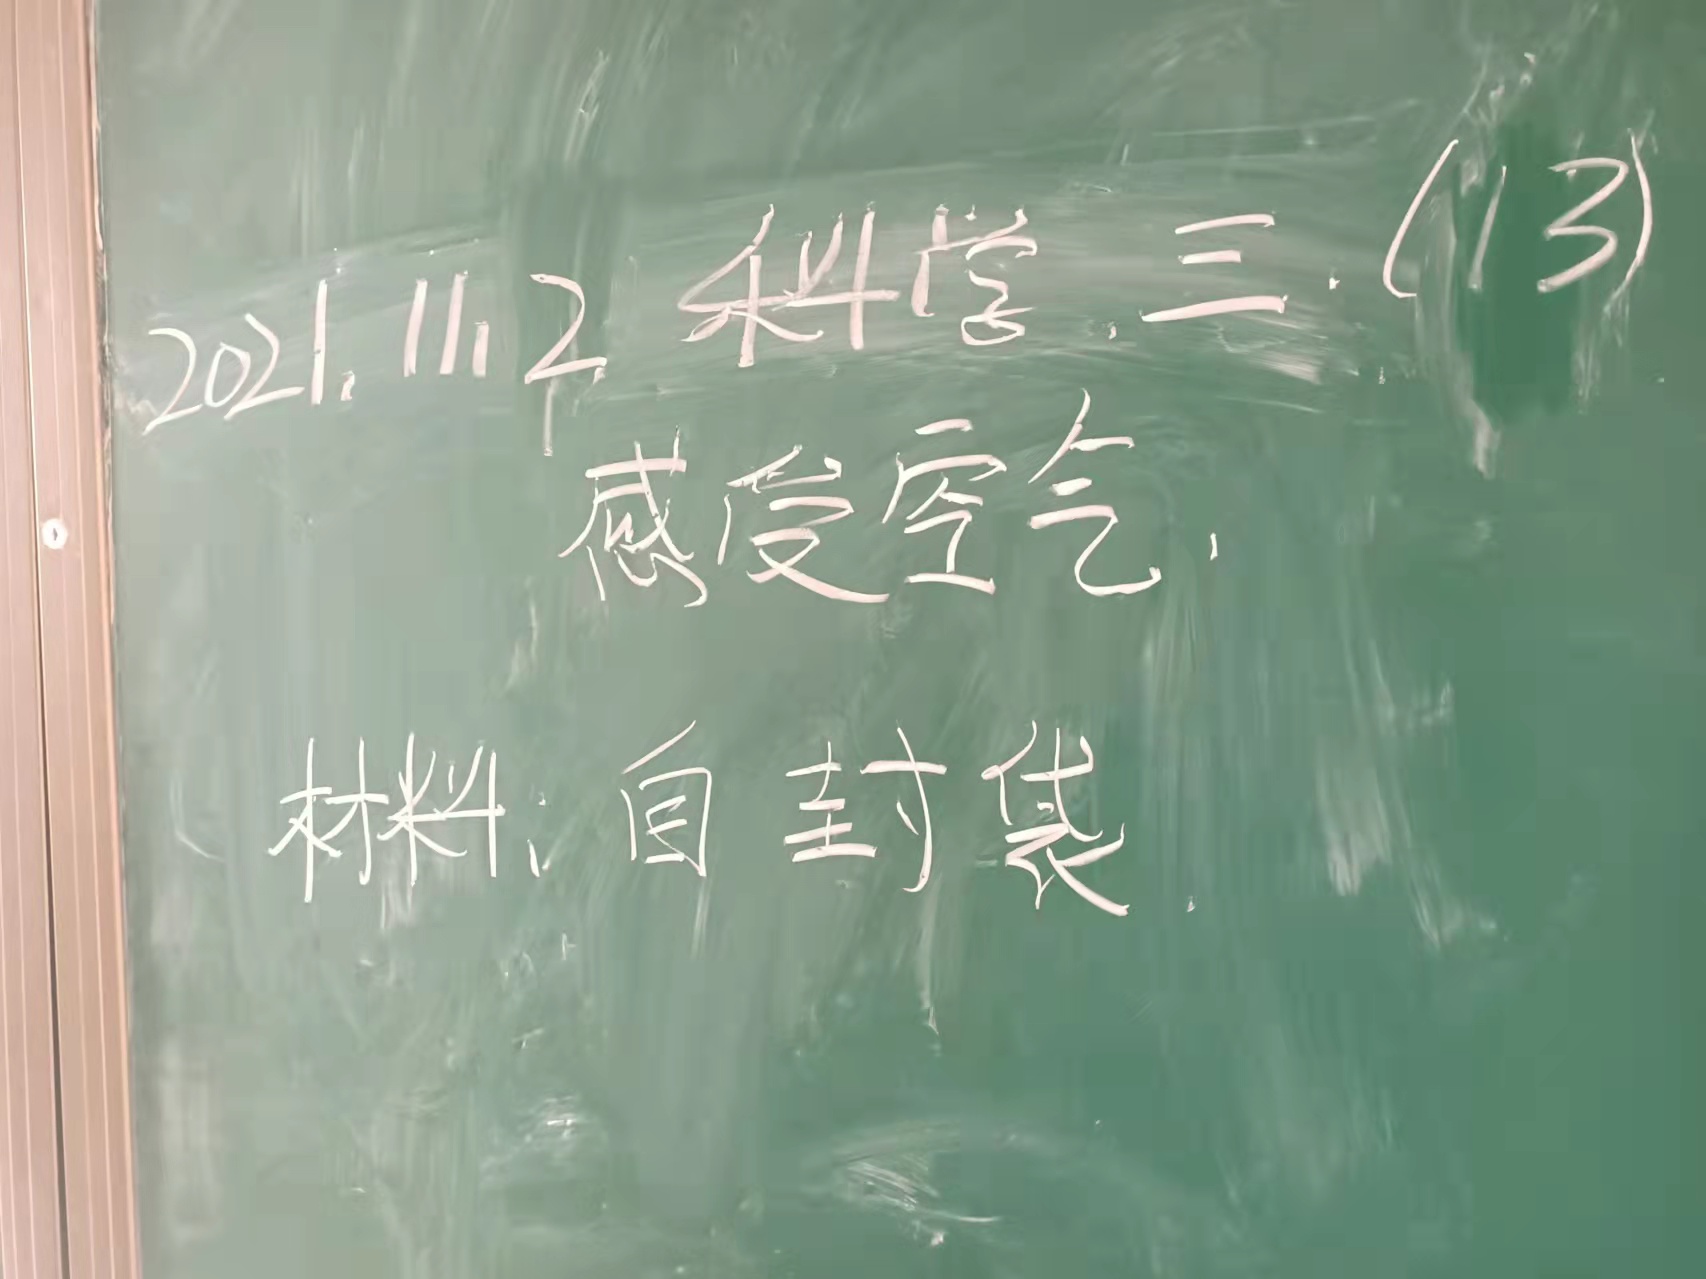 2021.11.2 科学.三.(13)
感受空气.
材料:自封袋.